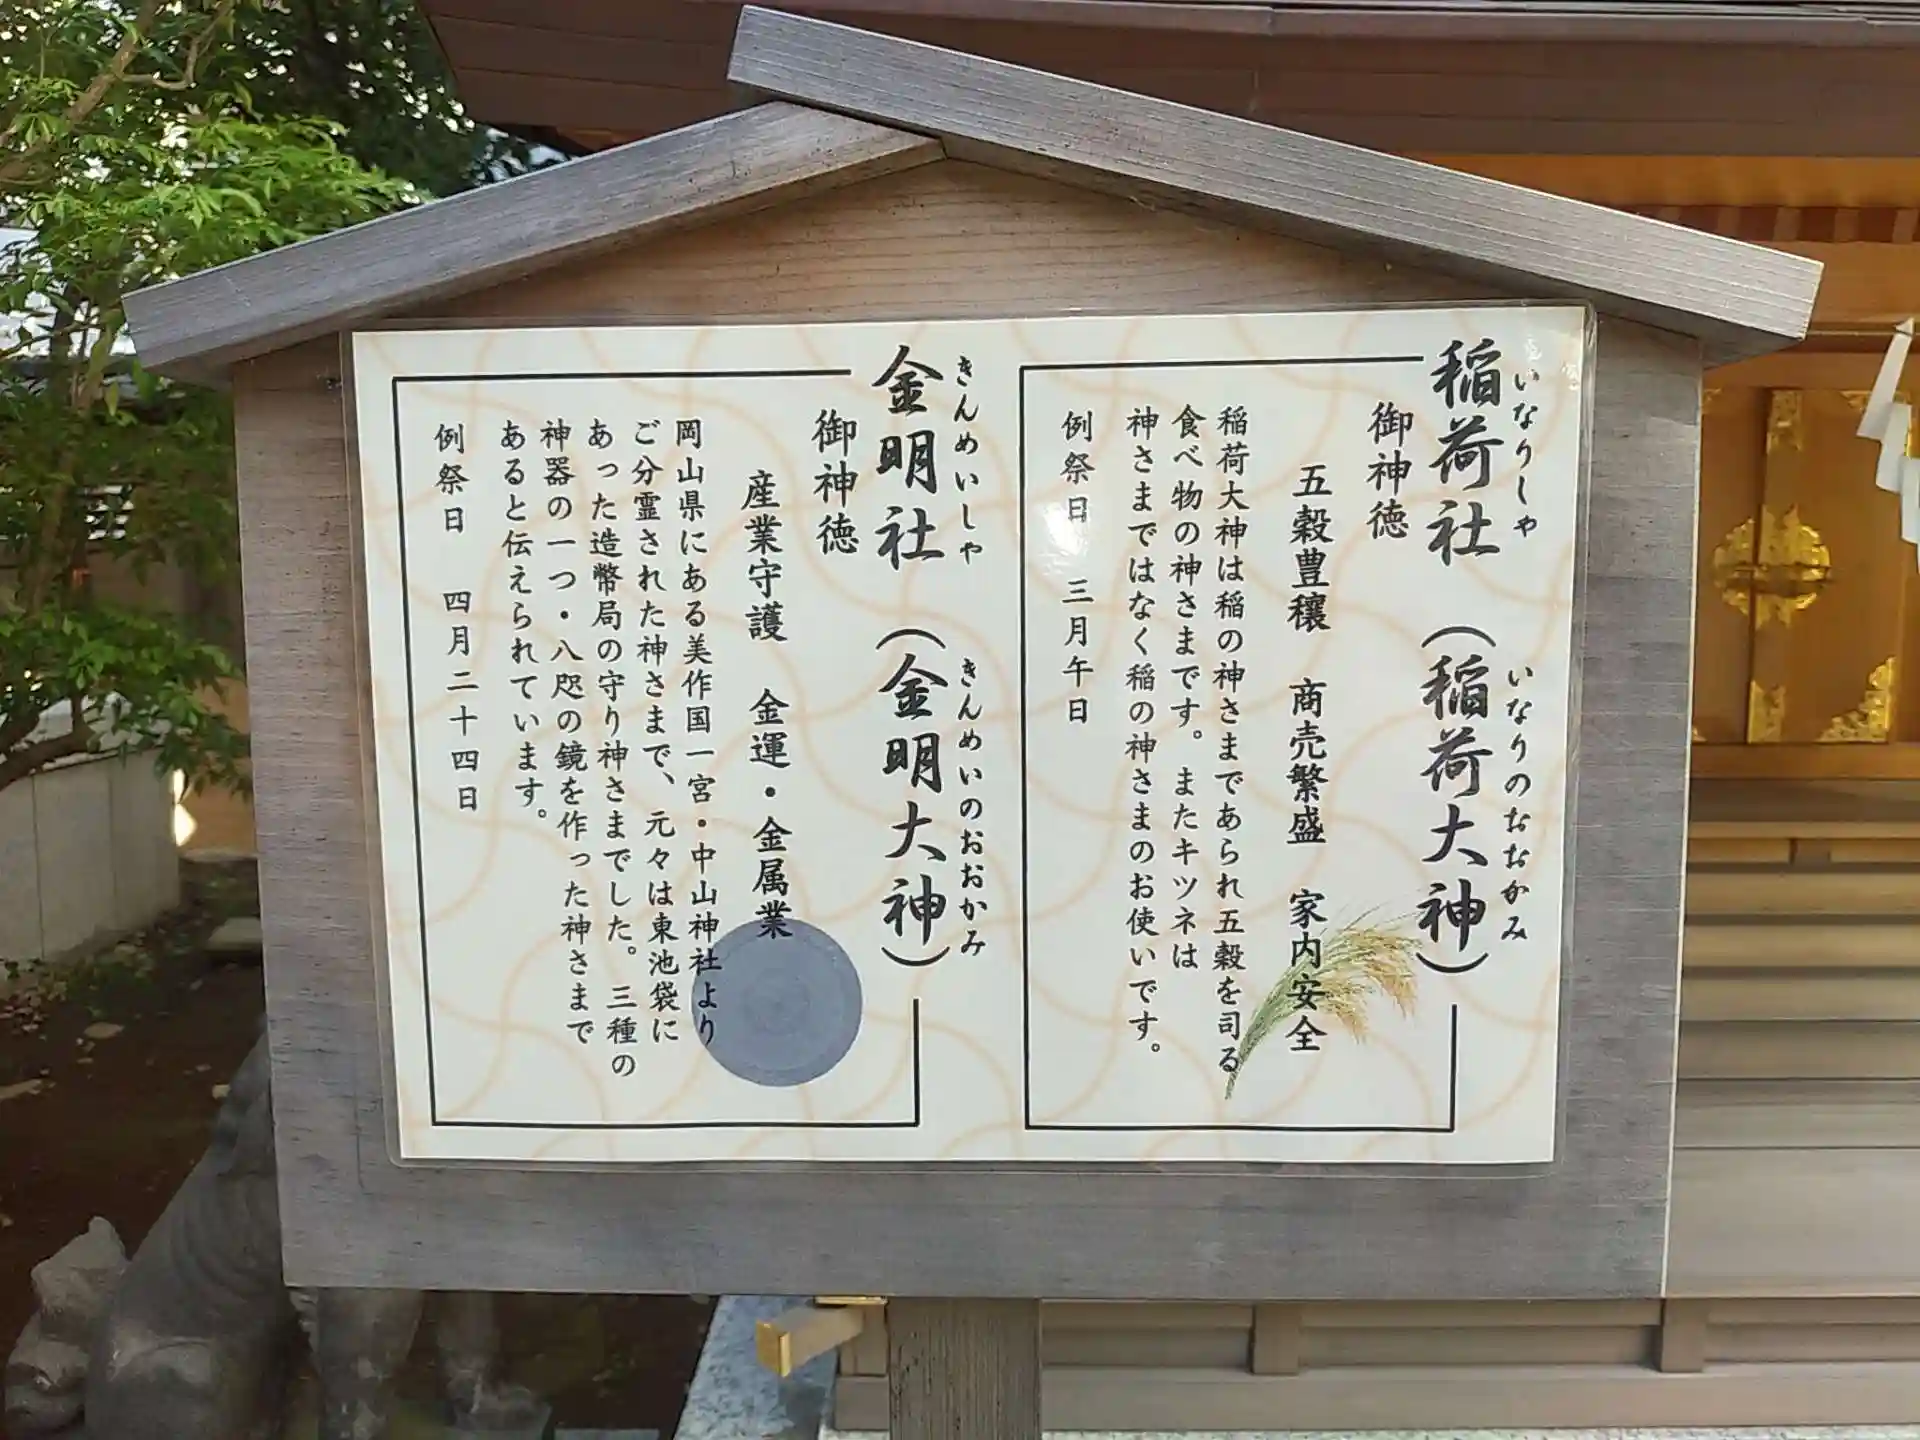 稲荷社（稲荷大神）
いなりしゃ
いなりのおおかみ
御神徳
五穀豊穣 商売繁盛 家内安全
稲荷大神は稲の神さまであられ五穀を司る
食べ物の神さまです。またキツネは
神さまではなく稲の神さまのお使いです。
例祭日 三月午日
金明社（金明大神）
きんめいしゃ
きんめいのおおかみ
御神徳
産業守護 金運・金属業
岡山県にある美作国一宮・中山神社より
ご分霊された神さまで、元々は東池袋に
あった造幣局の守り神さまでした。三種の
神器の一つ・八咫の鏡を作った神さまで
あると伝えられています。
例祭日 四月二十四日